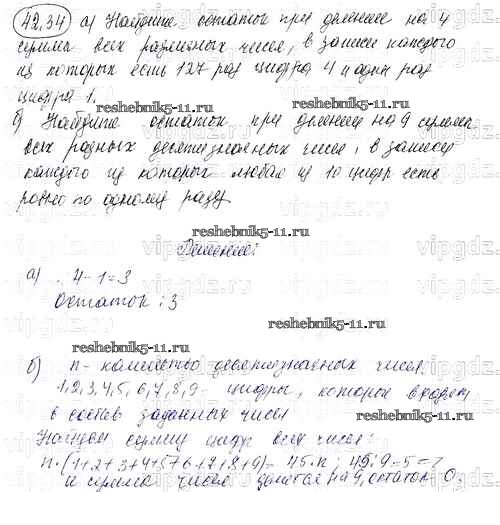 42.34 а) Найдите остаток при делении на 4
суммы всех различных чисел, в записи каждого
из которых есть 127 раз цифра 4 и один раз
цифра 1.
reshebnik5-11.ru
reshebnik5-11.ru
б) Найдите остаток при делении на 9 суммы
всех разных десятизначных чисел, в записи
каждого из которых любая из 10 цифр есть
ровно по одному разу.
reshebnik5-11.ru
Решение:
а) 4-1=3
Остаток: 3
reshebnik5-11.ru
б) n - количество десятизначных чисел.
1,2,3,4,5,6,7,8,9 - цифры, которые входят
в состав заданных чисел
reshebnik5-11.ru
Найдем сумму цифр всех чисел:
n·(1+2+3+4+5+6+7+8+9)=45·n; 45:9=5=>
и сумма чисел делится на 9, остаток 0.
reshebnik5-11.ru